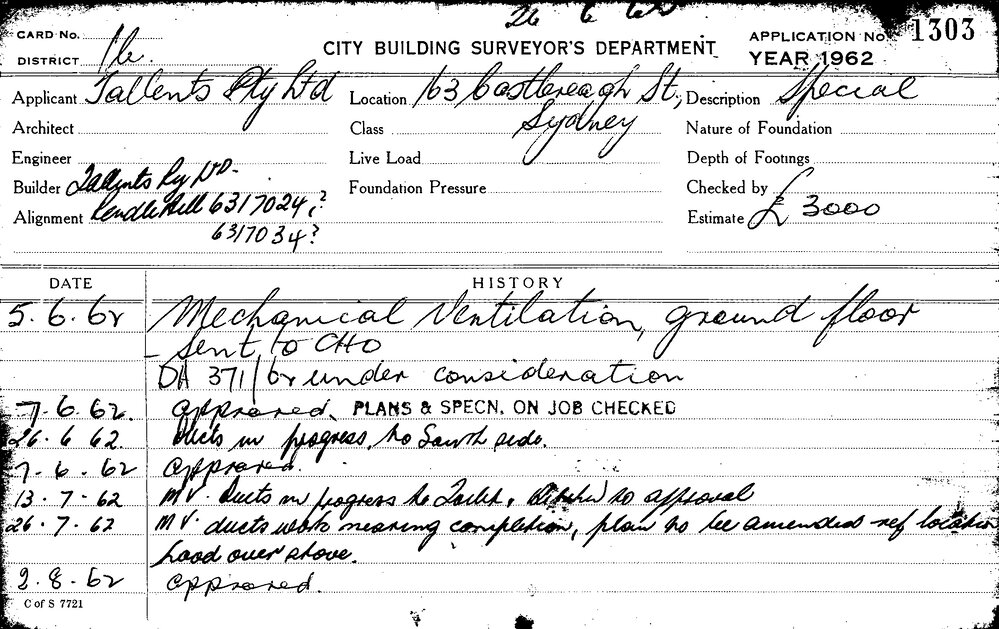 26 6 62
CARD No.
DISTRICT 16.
CITY BUILDING SURVEYOR'S DEPARTMENT
APPLICATION No. 1303
YEAR 1962
Applicant Tallents Pty Ltd
Location 163 Castlereagh St, Sydney
Description Special
Architect
Class
Nature of Foundation
Engineer
Live Load
Depth of Footings
Builder Tallents Pty Ltd.
Foundation Pressure
Checked by
Alignment 6317024,?
6317034?
Estimate £ 3000
DATE HISTORY
5.6.62 Mechanical Ventilation, ground floor
- Sent to CHO
DA 371/62 under consideration
7.6.62. approved. PLANS & SPECN. ON JOB CHECKED
26.6.62. Ducts in progress, to South side.
7.6.62 approved.
13.7.62 M.V. Ducts in progress to Toilet, Kitchen to approval
26.7.62 M.V. ducts work nearing completion, plan to be amended ref location
hood over stove.
2.8.62 approved.
C of S 7721